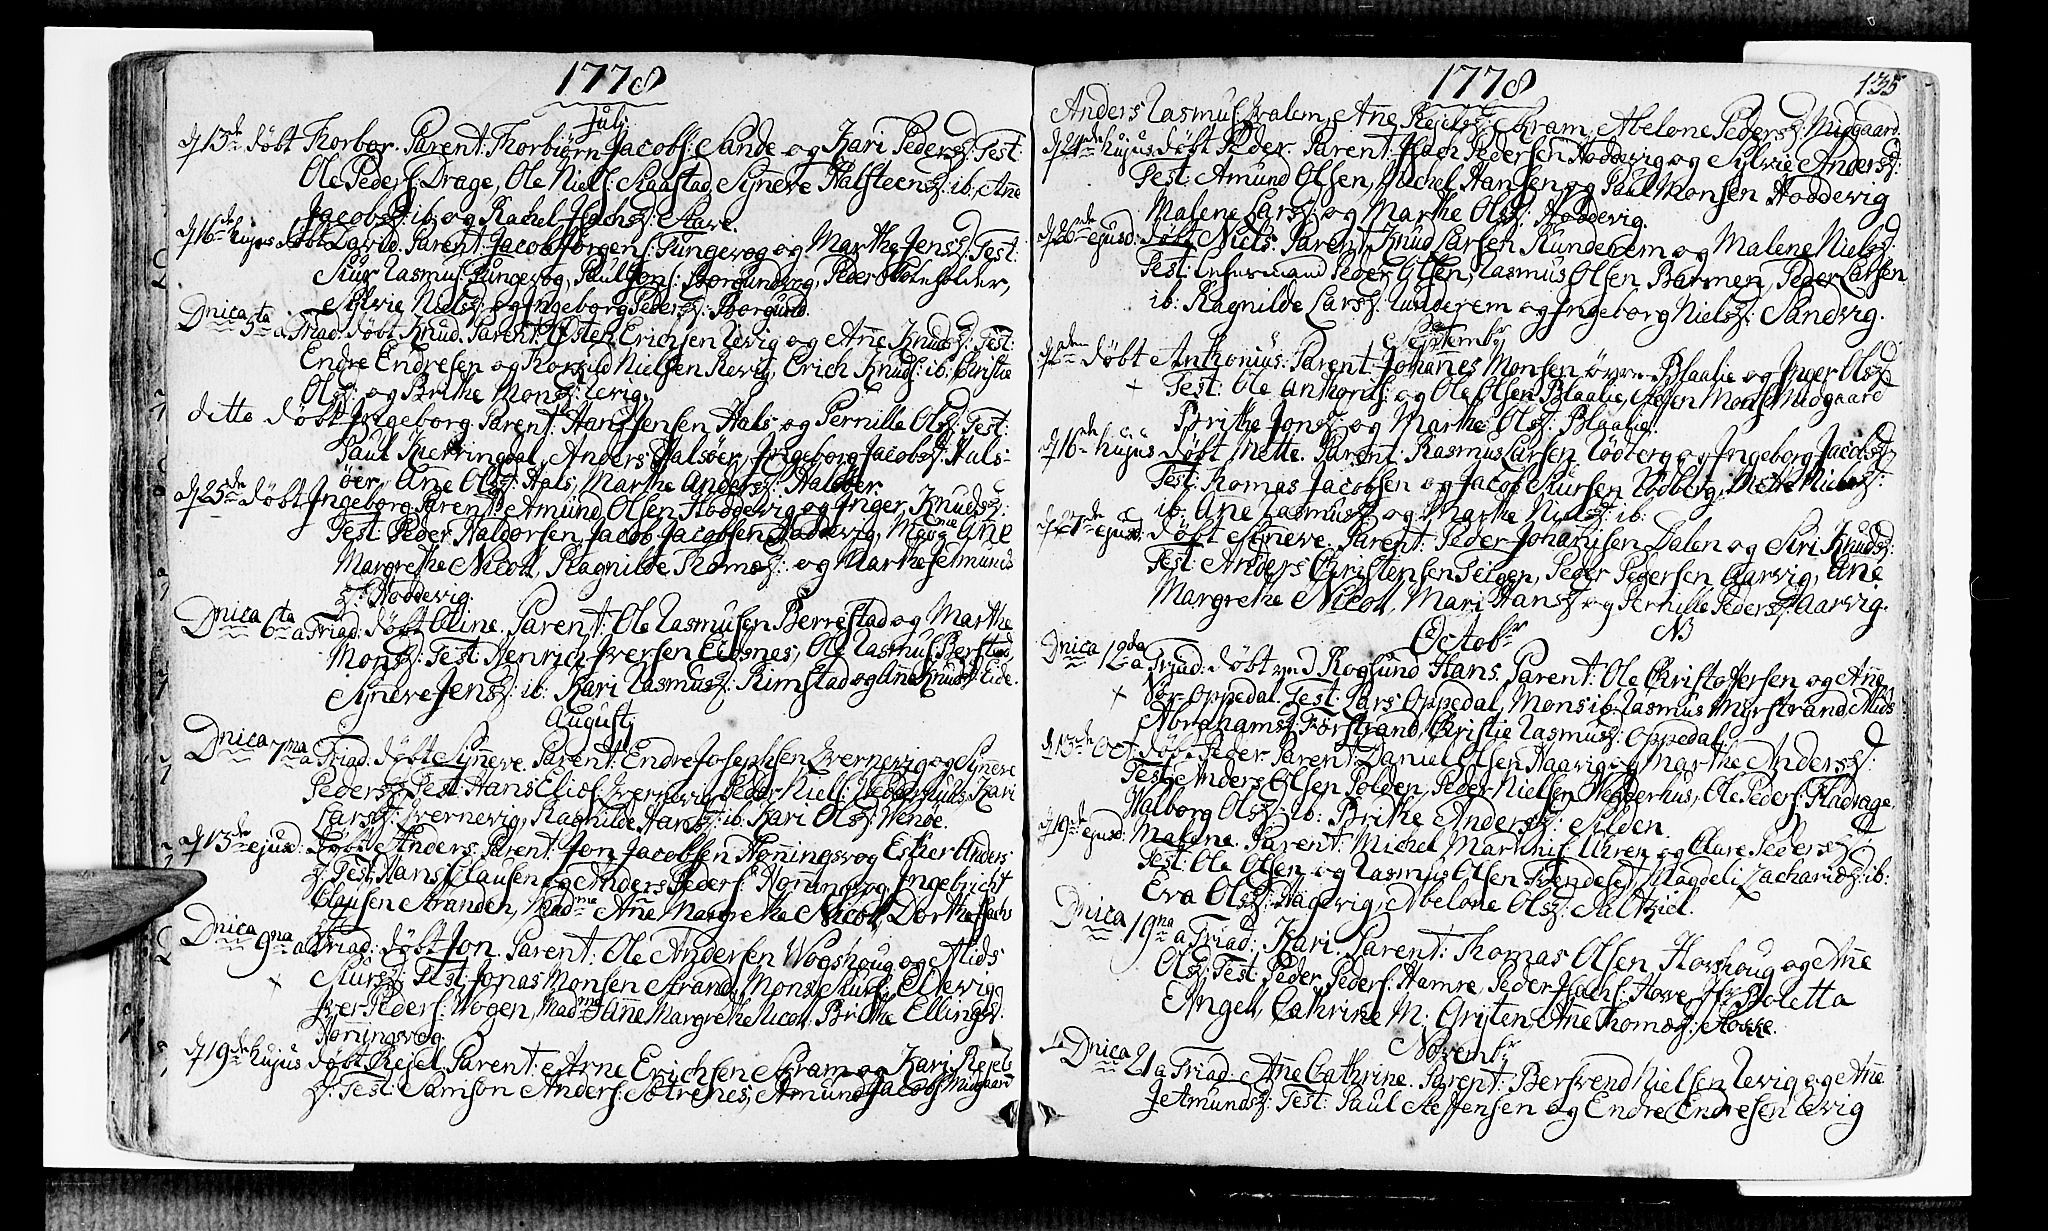 1778
July
d 13de døbt Thorbor. Parent: Thorbiørn Jacobs: Sande og Kari Pedersd: Test:
Ole Peders: Drage, Ole Niels: Skaastad, Syneve Halsteensd: ib: Ane
Jacobsd: ib: og Rachel Isachsd: Skare.
d 16de hujus døbt David. Parent: Jacob Jørgens: Pungevog og Marthe Jensd: Test:
Siur Rasmus: Pungevog, Paul Jons: Borgundvog, Peder
Sylvie Nielsd: og Ingeborg Pedersd: Borgund.
Dnica 5ta a Triad: døbt Knud. Parent: Østen Erichsen Revig og Ane Knudsd: Test:
Endre Endresen og Nielsen Revig, Erich Knuds: ib: Christie
Olsd: og Brithe Monsd: Revig.
dette døbt Ingeborg Parent: Hans Jensen Hals og Pernille Olsd: Test:
Paul Skierringdal, Anders Halsøer, Ingeborg Jacobsd: Hals-
øer, Ane Olsd: Hals, Marthe Andersd: Halsøer.
d 25de døbt Ingeborg Parent: Amund Olsen Hoddevig og Inger Knudsd:
Test: Peder Haldorsen, Jacob Jacobsen Hoddevig, Ane
Margrethe Nicoll, Ragnilde Thomasd: og Marthe Jetmunds
d: Hoddevig.
Dnica 6ta a Triad: døbt Oline. Parent: Ole Rasmusen Berrestad og Marthe
Monsd: Test: Henrich Iversen Eidsnes, Ole Rasmus: Berstad,
Syneve Jensd: ib: Kari Rasmusd: Rimstad og Ane Knudsd: Eide.
Augusty
Dnica 7ma a Triad: døbt Syneve. Parent: Endre Josephsen Ervevig og Syneve
Pedersd: Test: Hans Elias: Peder Niels: Kari
Larsd: Ragnilde Hansd: ib: Kari Olsd: Wende.
d 13de ejusd: døbt Anders. Parent: Jon Jacobsen Honningsvog Esther Anders
d: Test: Hans Clausen og Anders Peders: Honningsvog, Ingebricht
Clausen Stranden, Madme Ane Margrethe Nicoll, Dorthe Isachs
d:
Dnica 9na a Triad: døbt Jon. Parent: Ole Andersen Wogshoug og Alids
Siursd: Test: Jonas Monsen Strand, Mons Siurs: Ellevig,
Iver Peders: Wogen, Madme Ane Margrethe Nicoll. Brithe Ellingsd:
Honingsvog.
d 19de hujus døbt Rejel. Parent: Arne Erichsen Skram og Kari Rejels
d: Test: Samson Anders: Sætrenes, Amund Jacobs: Midgaard
1778
135
Anders Rasmus: Hvalem, Ane Rejelsd: Skram, Abelone Pedersd: Midgaard.
d 21de hujus døbt Peder. Parent: Isach Pedersen Hoddevig og Sylvie Andersd:
Test: Amund Olsen, Michel Hansen og Paul Monsen Hoddevig
Malene Larsd: og Marthe Olsd: Hoddevig.
d 26de ejusd: døbt Niels. Parent: Knud Larsen Runderem og Malene Nielsd:
Test: Peder Olsen, Rasmus Olsen Barmen, Peder Larsen
ib: Ragnilde Larsd: Runderem og Ingeborg Nielsd: Sandvig.
Septembr
døbt Anthonius. Parent: Johannes Monsen øvre Blaalie og Inger Olsd:
+ Test: Ole Anthonis: og Ole Olsen Blaalie, Steffen Mons: Midgaard
Brithe Jonsd: og Marthe Olsd: Blaalie.
d 16de hujus døbt Mette. Parent: Rasmus Larsen Rødberg og Ingeborg Jacobsd:
Test: Thomas Jacobsen og Jacob Siursen Rødberg, Mette
ib: Ane Rasmusd: og Marthe Nielsd: ib:
d 27de ejusd: døbt Syneve. Parent: Peder Johansen Dalen og Siri Knudsd:
Test: Anders Christensen Teigen, Peder Pedersen Aarvig, Ane
Margrethe Nicoll, Mari Hansd: og Pernille Pedersd: Aarvig.
Octobr NB
Dnica 12da a Triad: døbt ved Roglund Hans. Parent: Ole Christophersen og Ane
+ Nor-Oppedal. Test: Lars Oppedal, Mons ib: Rasmus Myrstrand, Alids
Abrahamsd: Førstrand, Christie Rasmusd: Oppedal.
d 13de Oct: døbt Peder. Parent: Daniel Olsen Haavig og Marthe Andersd:
Test: Anders Olsen Polden, Peder Nielsen Wedderhus, Ole Peders: Fladrage,
Walborg Olsd: ib: Brithe Andersd: Polden.
d 19de ejusd: Malene. Parent: Michel Marthis: Uren og Clare Pedersd:
Test: Ole Olsen og Rasmus Olsen Magdeli Zachariæd: ib:
Eva Olsd: Hagevig, Abelone Olsd: Saltkiel.
Dnica 19na a Triad: Kari. Parent: Thomas Olsen Horshoug og Ane
Olsd: Test: Peder Peders: Hamre, Peder Isachs: Hovre, Jfr Boletta
Angel, Cathrine M: Gristen, Ane Thomasd: Hovre.
Novembr
Dnica 21 a Triad: Ane Cathrine. Parent: Bersvend Nielsen Revig og Ane
Jetmundsd: Test: Paul Steffensen og Endre Endresen Revig